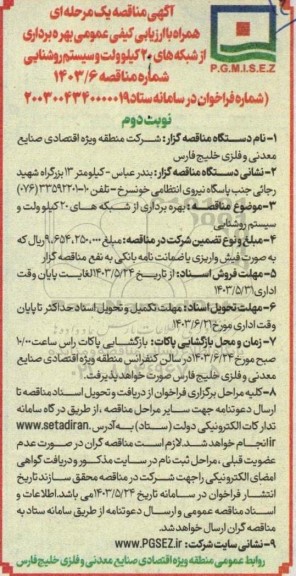 آگهی مناقصه یک مرحله ای
همراه با ارزیابی کیفی عمومی بهره برداری
از شبکه های ۲۰ کیلو ولت و سیستم روشنایی
شماره مناقصه ۱۴۰۳/۶
P.G.M.I.S.E.Z
(شماره فراخوان در سامانه ستاد ۲۰۰۳۰۰۴۳۴۰۰۰۰۰۱۹)
نوبت دوم
۱- نام دستگاه مناقصه گزار: شرکت منطقه ویژه اقتصادی صنایع
معدنی و فلزی خلیج فارس
۲- نشانی دستگاه مناقصه گزار: بندرعباس - کیلومتر ۱۳ بزرگراه شهید
رجائی جنب پاسگاه نیروی انتظامی خونسرخ - تلفن ۱۰-۳۳۵۹۲۲۰۱ (۰۷۶)
۳- موضوع مناقصه: بهره برداری از شبکه های ۲۰ کیلو ولت و
سیستم روشنایی
۴- مبلغ و نوع تضمین شرکت در مناقصه: مبلغ ۹،۶۵۴،۲۵۰،۰۰۰ ریال که
به صورت فیش واریزی یا ضمانت نامه بانکی به نفع مناقصه گزار
۵- مهلت فروش اسناد: از تاریخ ۱۴۰۳/۵/۲۴ لغایت پایان وقت
اداری ۱۴۰۳/۵/۳۱
۶- مهلت تحویل اسناد: مهلت تکمیل و تحویل اسناد حداکثر تا پایان
وقت اداری مورخ ۱۴۰۳/۶/۲۱
۷- زمان و محل بازگشایی پاکات: بازگشایی پاکات راس ساعت ۱۰/۰۰
صبح مورخ ۱۴۰۳/۶/۲۴ در سالن کنفرانس منطقه ویژه اقتصادی صنایع
معدنی و فلزی خلیج فارس صورت خواهد پذیرفت.
۸- کلیه مراحل برگزاری فراخوان از دریافت و تحویل اسناد مناقصه تا
ارسال دعوتنامه جهت سایر مراحل مناقصه، از طریق درگاه سامانه
تدارکات الکترونیکی دولت (ستاد) به آدرس www.setadiran.
ir انجام خواهد شد. لازم است مناقصه گران در صورت عدم
عضویت قبلی، مراحل ثبت نام در سایت مذکور و دریافت گواهی
امضای الکترونیکی را جهت شرکت در مناقصه محقق سازند تاریخ
انتشار فراخوان در سامانه تاریخ ۱۴۰۳/۵/۲۴ می باشد. اطلاعات و
اسناد مناقصه عمومی و ارسال دعوتنامه از طریق سامانه ستاد به
مناقصه گران ارسال خواهد شد.
۹- نشانی سایت شرکت: www.PGSEZ.ir
روابط عمومی منطقه ویژه اقتصادی صنایع معدنی و فلزی خلیج فارس